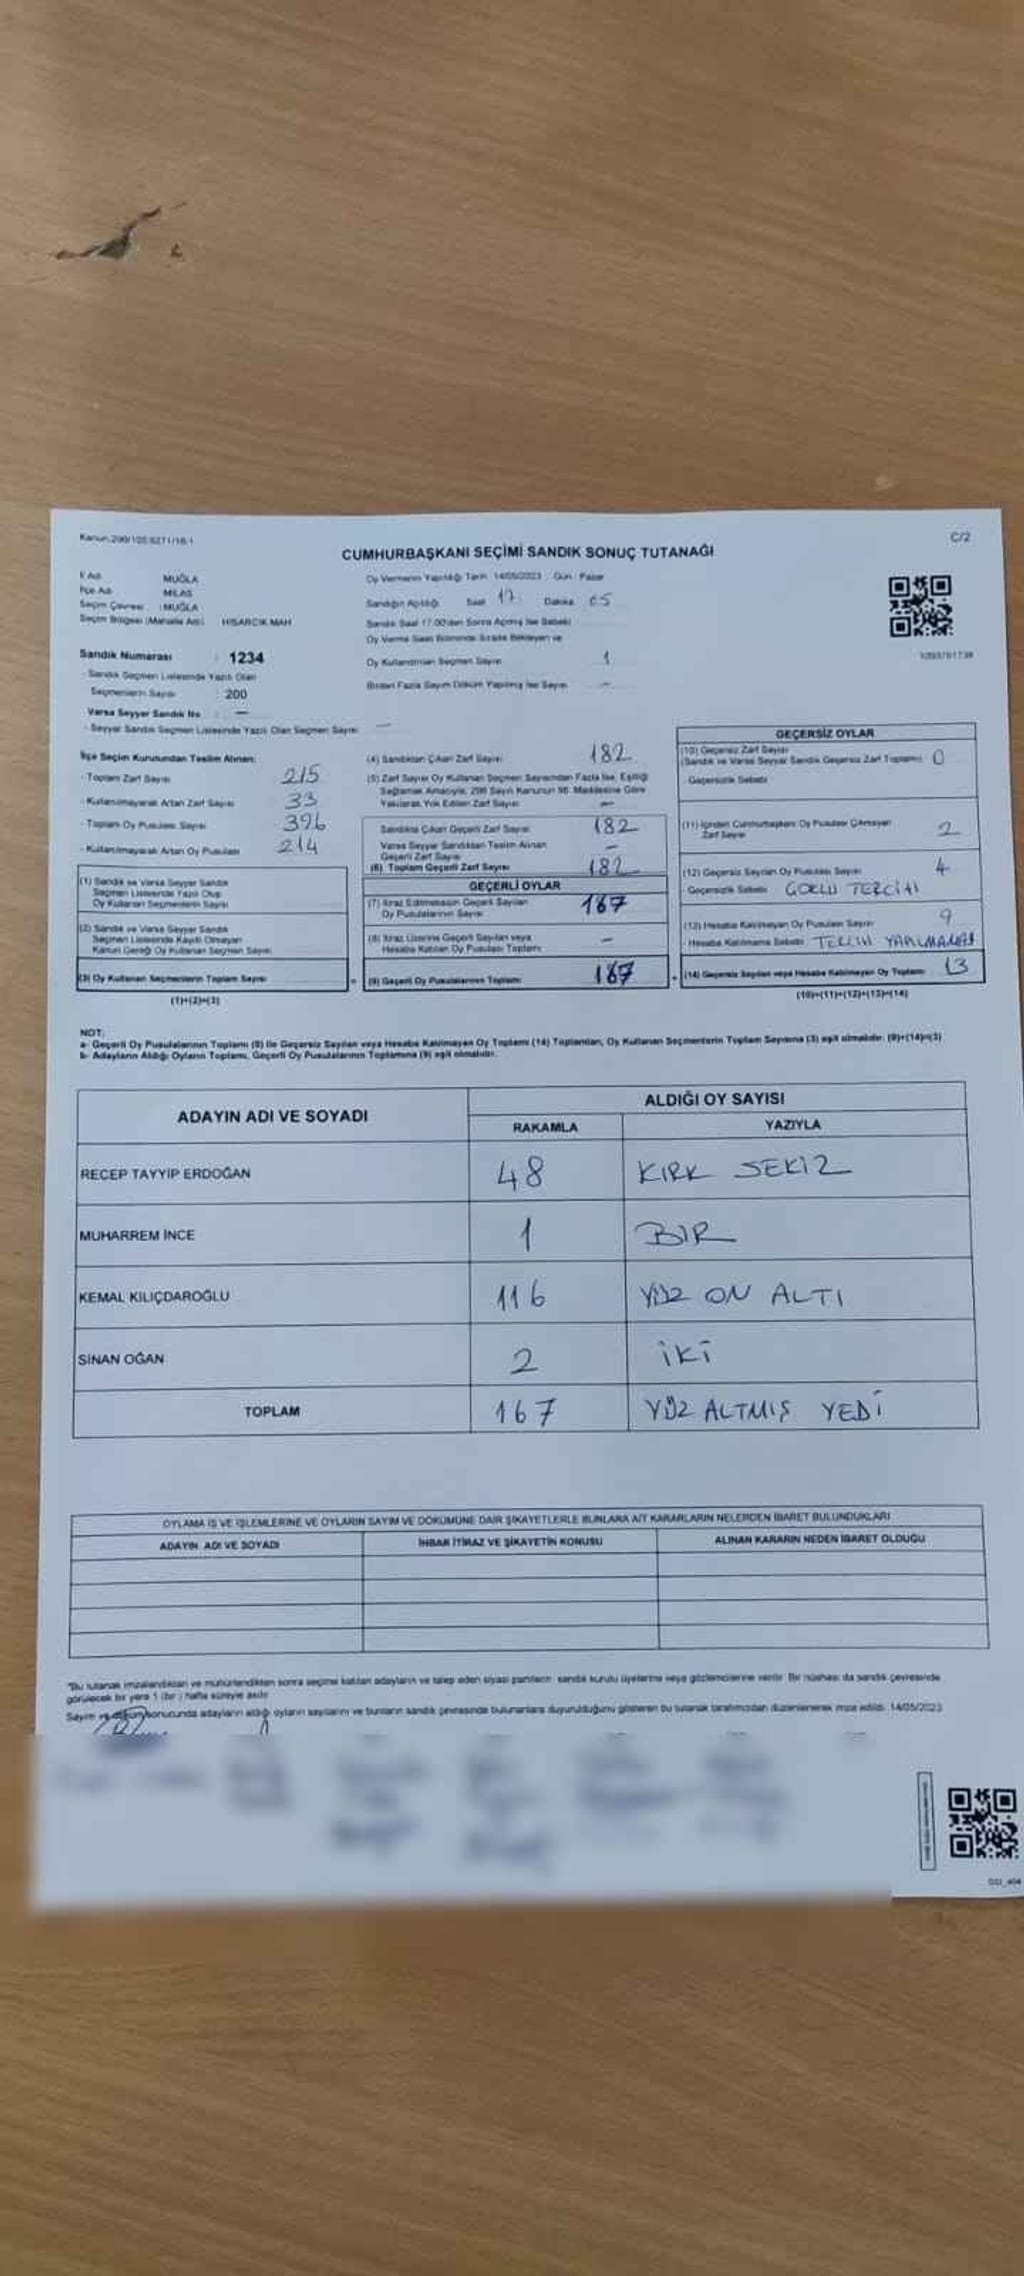 Kanun:298/105,6271/18.1
C/2
CUMHURBAŞKANI SEÇİMİ SANDIK SONUÇ TUTANAĞI
İl Adı MUĞLA
İlçe Adı MİLAS
Seçim Çevresi : MUĞLA
Seçim Bölgesi (Mahalle Adı) HİSARCIK MAH
Sandık Numarası : 1234
- Sandık Seçmen Listesinde Yazılı Olan
Seçmenlerin Sayısı : 200
Varsa Seyyar Sandık No : —
- Seyyar Sandık Seçmen Listesinde Yazılı Olan Seçmen Sayısı —
Oy Vermenin Yapıldığı Tarih 14/05/2023 Gün Pazar
Sandığın Açıldığı Saat 17 Dakika 05
Sandık Saat 17.00'den Sonra Açılmış İse Sebebi
Oy Verme Saati Bitiminde Sırada Bekleyen ve
Oy Kullandırılan Seçmen Sayısı 1
Birden Fazla Sayım Döküm Yapılmış İse Sayısı —
İlçe Seçim Kurulundan Teslim Alınan:
- Toplam Zarf Sayısı 215
- Kullanılmayarak Artan Zarf Sayısı 33
- Toplam Oy Pusulası Sayısı 396
- Kullanılmayarak Artan Oy Pusulası 214
(1) Sandık ve Varsa Seyyar Sandık
Seçmen Listesinde Yazılı Olup
Oy Kullanan Seçmenlerin Sayısı
(2) Sandık ve Varsa Seyyar Sandık
Seçmen Listesinde Kayıtlı Olmayan
Kanun Gereği Oy Kullanan Seçmen Sayısı
(3) Oy Kullanan Seçmenlerin Toplam Sayısı
(1)+(2)=(3)
(4) Sandıktan Çıkan Zarf Sayısı 182
(5) Zarf Sayısı Oy Kullanan Seçmen Sayısından Fazla İse, Eşitliği
Sağlamak Amacıyla, 298 Sayılı Kanunun 98. Maddesine Göre
Yakılarak Yok Edilen Zarf Sayısı —
Sandıkta Çıkan Geçerli Zarf Sayısı 182
Varsa Seyyar Sandıktan Teslim Alınan
Geçerli Zarf Sayısı —
(6) Toplam Geçerli Zarf Sayısı 182
GEÇERLİ OYLAR
(7) İtiraz Edilmeksizin Geçerli Sayılan
Oy Pusulalarının Sayısı 167
(8) İtiraz Üzerine Geçerli Sayılan veya
Hesaba Katılan Oy Pusulası Toplamı —
(9) Geçerli Oy Pusulalarının Toplamı 167
GEÇERSİZ OYLAR
(10) Geçersiz Zarf Sayısı
(Sandık ve Varsa Seyyar Sandık Geçersiz Zarf Toplamı) 0
Geçersizlik Sebebi
(11) İçinden Cumhurbaşkanı Oy Pusulası Çıkmayan
Zarf Sayısı 2
(12) Geçersiz Sayılan Oy Pusulası Sayısı 4
Geçersizlik Sebebi
(13) Hesaba Katılmayan Oy Pusulası Sayısı 9
- Hesaba Katılmama Sebebi
(14) Geçersiz Sayılan veya Hesaba Katılmayan Oy Toplamı 13
(10)+(11)+(12)+(13)=(14)
NOT:
a- Geçerli Oy Pusulalarının Toplamı (9) ile Geçersiz Sayılan veya Hesaba Katılmayan Oy Toplamı (14) Toplamları, Oy Kullanan Seçmenlerin Toplam Sayısına (3) eşit olmalıdır. (9)+(14)=(3)
b- Adayların Aldığı Oyların Toplamı, Geçerli Oy Pusulalarının Toplamına (9) eşit olmalıdır.
ADAYIN ADI VE SOYADI ALDIĞI OY SAYISI
RAKAMLA YAZIYLA
RECEP TAYYİP ERDOĞAN 48 KIRK SEKIZ
MUHARREM İNCE 1 BIR
KEMAL KILIÇDAROĞLU 116 YÜZ ON ALTI
SİNAN OĞAN 2 iKi
TOPLAM 167 YÜZ ALTMIŞ YEDi
OYLAMA İŞ VE İŞLEMLERİNE VE OYLARIN SAYIM VE DÖKÜMÜNE DAİR ŞİKAYETLERLE BUNLARA AİT KARARLARIN NELERDEN İBARET BULUNDUKLARI
ADAYIN ADI VE SOYADI İHBAR İTİRAZ VE ŞİKAYETİN KONUSU ALINAN KARARIN NEDEN İBARET OLDUĞU
"Bu tutanak imzalandıktan ve mühürlendikten sonra seçime katılan adayların ve talep eden siyasi partilerin sandık kurulu üyelerine veya gözlemcilerine verilir. Bir nüshası da sandık çevresinde
görülecek bir yere 1 (bir ) hafta süreyle asılır
Sayım ve döküm sonucunda adayların aldığı oyların sayılarını ve bunların sandık çevresinde bulunanlara duyurulduğunu gösteren bu tutanak tarafımızdan düzenlenerek imza edildi. 14/05/2023